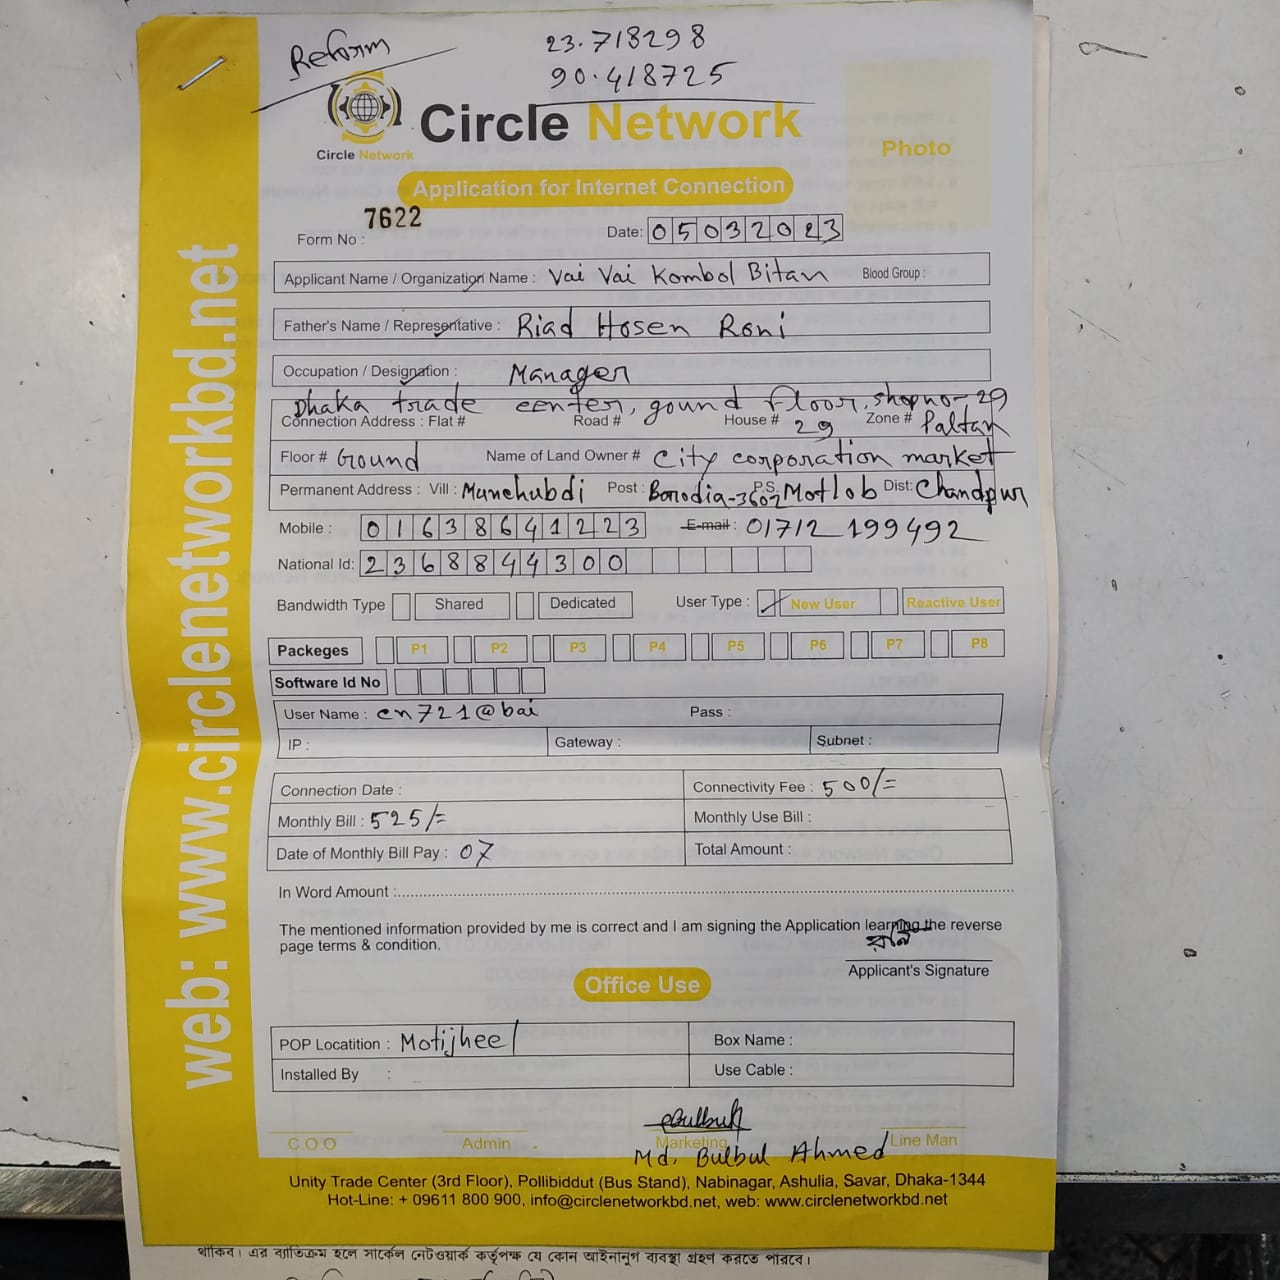 Reform
23.718298
90.418725
Circle Network
Circle Network
Photo
Application for Internet Connection
Form No : 7622
Date: 05032023
Applicant Name / Organization Name : Vai Vai Kombol Bitan Blood Group :
Father's Name / Representative : Riad Hosen Roni
Occupation / Designation : Manager
Dhaka trade center, gound floor, shop no-29
Connection Address : Flat # Road # House # 29 Zone # Paltan
Floor # Ground Name of Land Owner # City corporation market
Permanent Address : Vill : Munchubdi Post : Borodia-3602 P.S. Motlob Dist: Chandpur
Mobile : 01638641223 E-mail : 01712 199492
National Id: 2368844300
Bandwidth Type Shared Dedicated User Type : New User Reactive User
Packeges P1 P2 P3 P4 P5 P6 P7 P8
Software Id No
User Name : cn721@bai Pass :
IP : Gateway : Subnet :
Connection Date : Connectivity Fee : 500/=
Monthly Bill : 525/= Monthly Use Bill :
Date of Monthly Bill Pay : 07 Total Amount :
In Word Amount :
The mentioned information provided by me is correct and I am signing the Application learning the reverse
page terms & condition.
রনি
Applicant's Signature
Office Use
POP Locatition : Motijheel Box Name :
Installed By : Use Cable :
Bulbul
C.O.O Admin . Marketing Line Man
Md. Bulbul Ahmed
Unity Trade Center (3rd Floor), Pollibiddut (Bus Stand), Nabinagar, Ashulia, Savar, Dhaka-1344
Hot-Line: + 09611 800 900, info@circlenetworkbd.net, web: www.circlenetworkbd.net
web: www.circlenetworkbd.net
থাকিব। এর ব্যতিক্রম হলে সার্কেল নেটওয়ার্ক কর্তৃপক্ষ যে কোন আইনানুগ ব্যবস্থা গ্রহণ করতে পারবে।